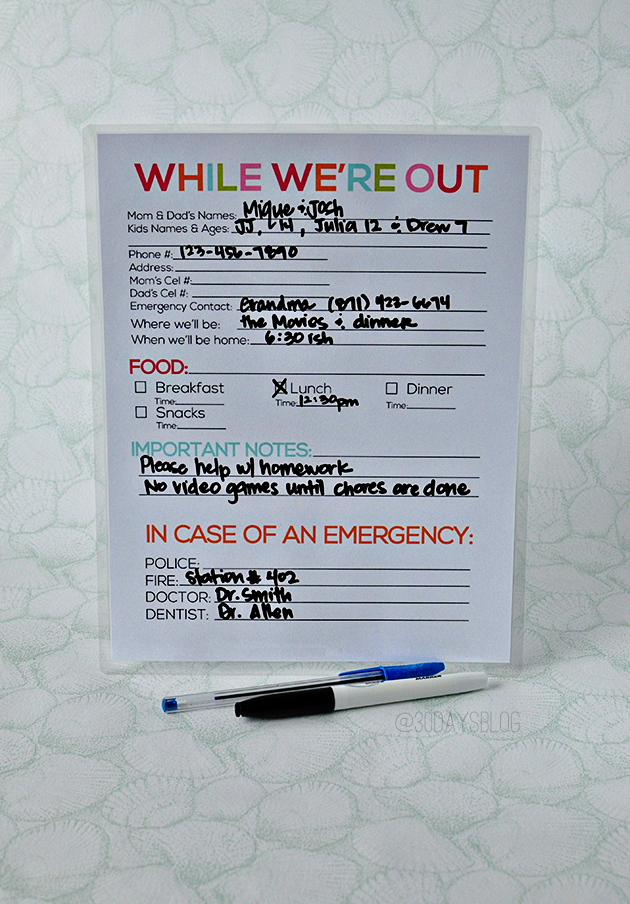 WHILE WE'RE OUT
Mom & Dad's Names: Mique & Josh
Kids Names & Ages: JJ, 14, Julia 12 & Drew 7
Phone #: 123-456-7890
Address:
Mom's Cel #:
Dad's Cel #:
Emergency Contact: Grandma (871) 423-6674
Where we'll be: the Movies & dinner
When we'll be home: 6:30 ish
FOOD:
Breakfast X Lunch Dinner
Time: Time: 12:30pm Time:
Snacks
Time:
IMPORTANT NOTES:
Please help w/ homework
No video games until chores are done
IN CASE OF AN EMERGENCY:
POLICE:
FIRE: Station # 402
DOCTOR: Dr. Smith
DENTIST: Dr. Allen
@30DAYSBLOG